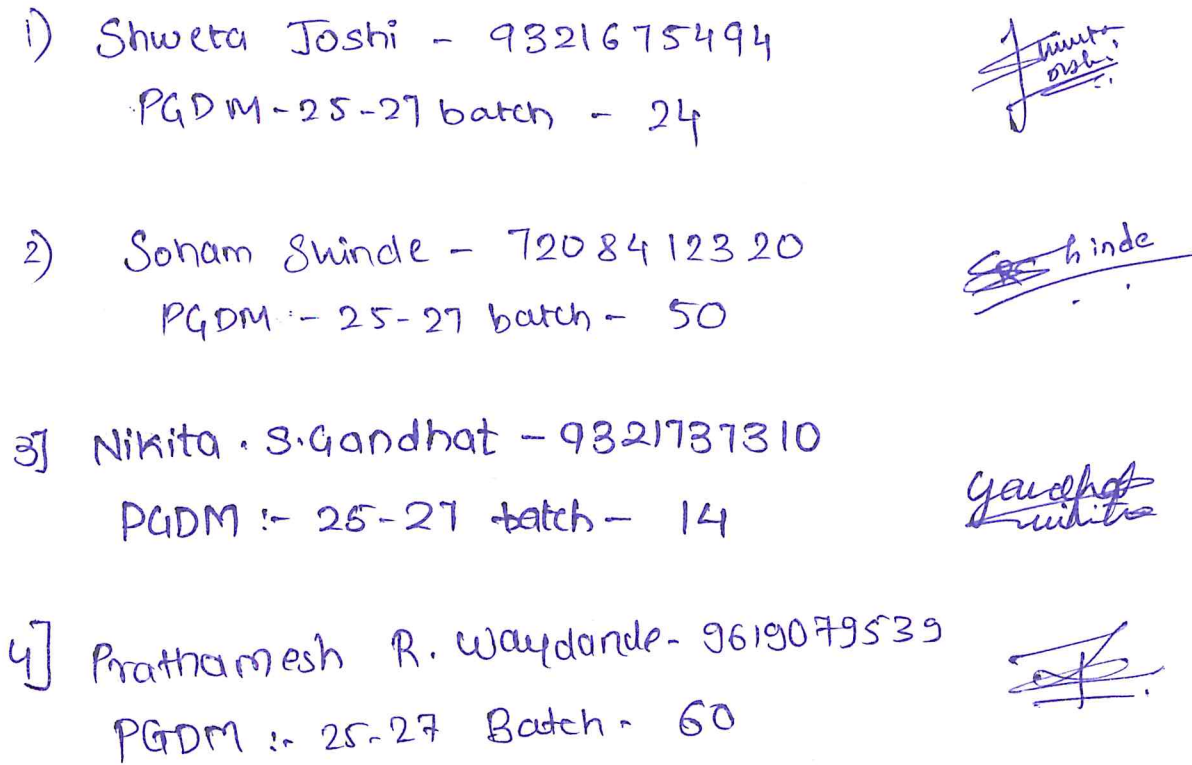 1) Shweta Joshi - 9321675494
PGDM - 25-27 batch - 24
2) Soham Shinde - 7208412320
Shinde
PGDM :- 25-27 batch - 50
3] Nikita . S. Gandhat - 9321737310
PGDM :- 25-27 batch - 14
Gandhat
4] Prathamesh R. Waydande - 9619079539
PGDM :- 25-27 Batch - 60